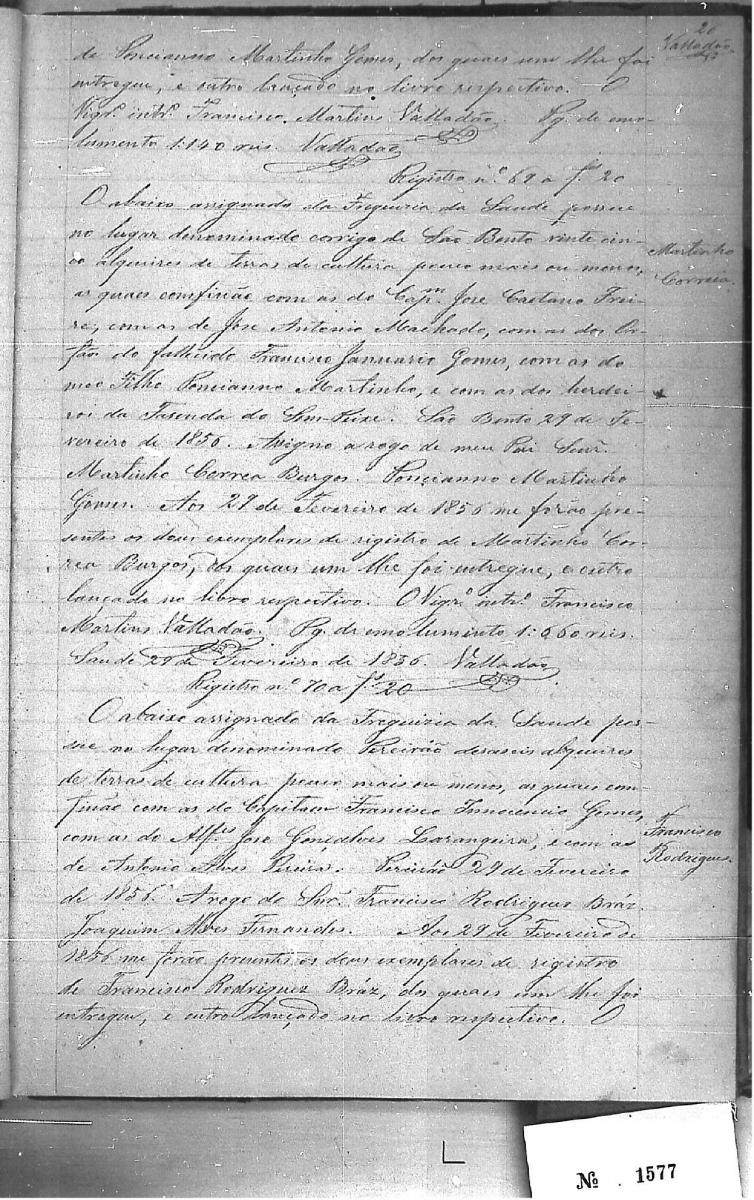 20
Valladão
de Poncianno Martinho Gomes, dos quaes um lhe foi
entregue, e outro lançado no livro respectivo. O
Vigrº. intrº. Francisco Martins Valladão. Pg. de emo-
lumento 1:140 reis. Valladão
Registro nº 69 a fs 20
O abaixo assignado da Freguezia da Saude possue
no lugar denominado corrigo de São Bento vinte cin-
co alqueires de terras de cultura pouco mais ou menos,
Martinho
Correia.
as quaes comfinão com as do Capm. Jose Caetano Frei-
re, com as de Jose Antonio Machado, com as dos Or-
fãos do fallecido Francisco Januario Gomes, com as do
meo Filho Poncianno Martinho, e com as dos herdei-
roi da Fasenda do Sem-Peixe. São Bento 29 de Fe-
vereiro de 1856. Assigno a rogo de meu Pai Senr.
Martinho Correa Burgos. Poncianno Martinho
Gomes. Aos 29 de Fevereiro de 1856 me forão pre-
sentes os dous exemplares de registro de Martinho Cor-
rea Burgos, dos quais um lhe foi entregue, e outro
lançado no libro respectivo. O Vigrº. intrº. Francisco
Martins Valladão. Pg. de emolumento 1:660 reis.
Saude 29 de Fevereiro de 1856. Valladão
Registro nº 70 a fs 20
O abaixo assignado da Freguizia da Saude pos-
sue no lugar denominado Pereirão desaseis alqueires
de terras de cultura pouco mais ou menos, as quaes com-
finão com as do Capitaen Francisco Innocencio Gomes,
Francisco
Rodrigues.
com as do Alfes. Jose Gonçalves Larangeira, e com as
de Antonio Alves Pereira. Pereirão 29 de Fevereiro
de 1856. A rogo do Snr. Francisco Rodrigues Bráz.
Joaquim Alves Fernandes. Aos 29 de Fevereiro de
1856 me forão presentes os dous exemplares de registro
de Francisco Rodriguez Bráz, dos quaes um lhe foi
entregue, e outro lançado no livro respectivo. O
No 1577